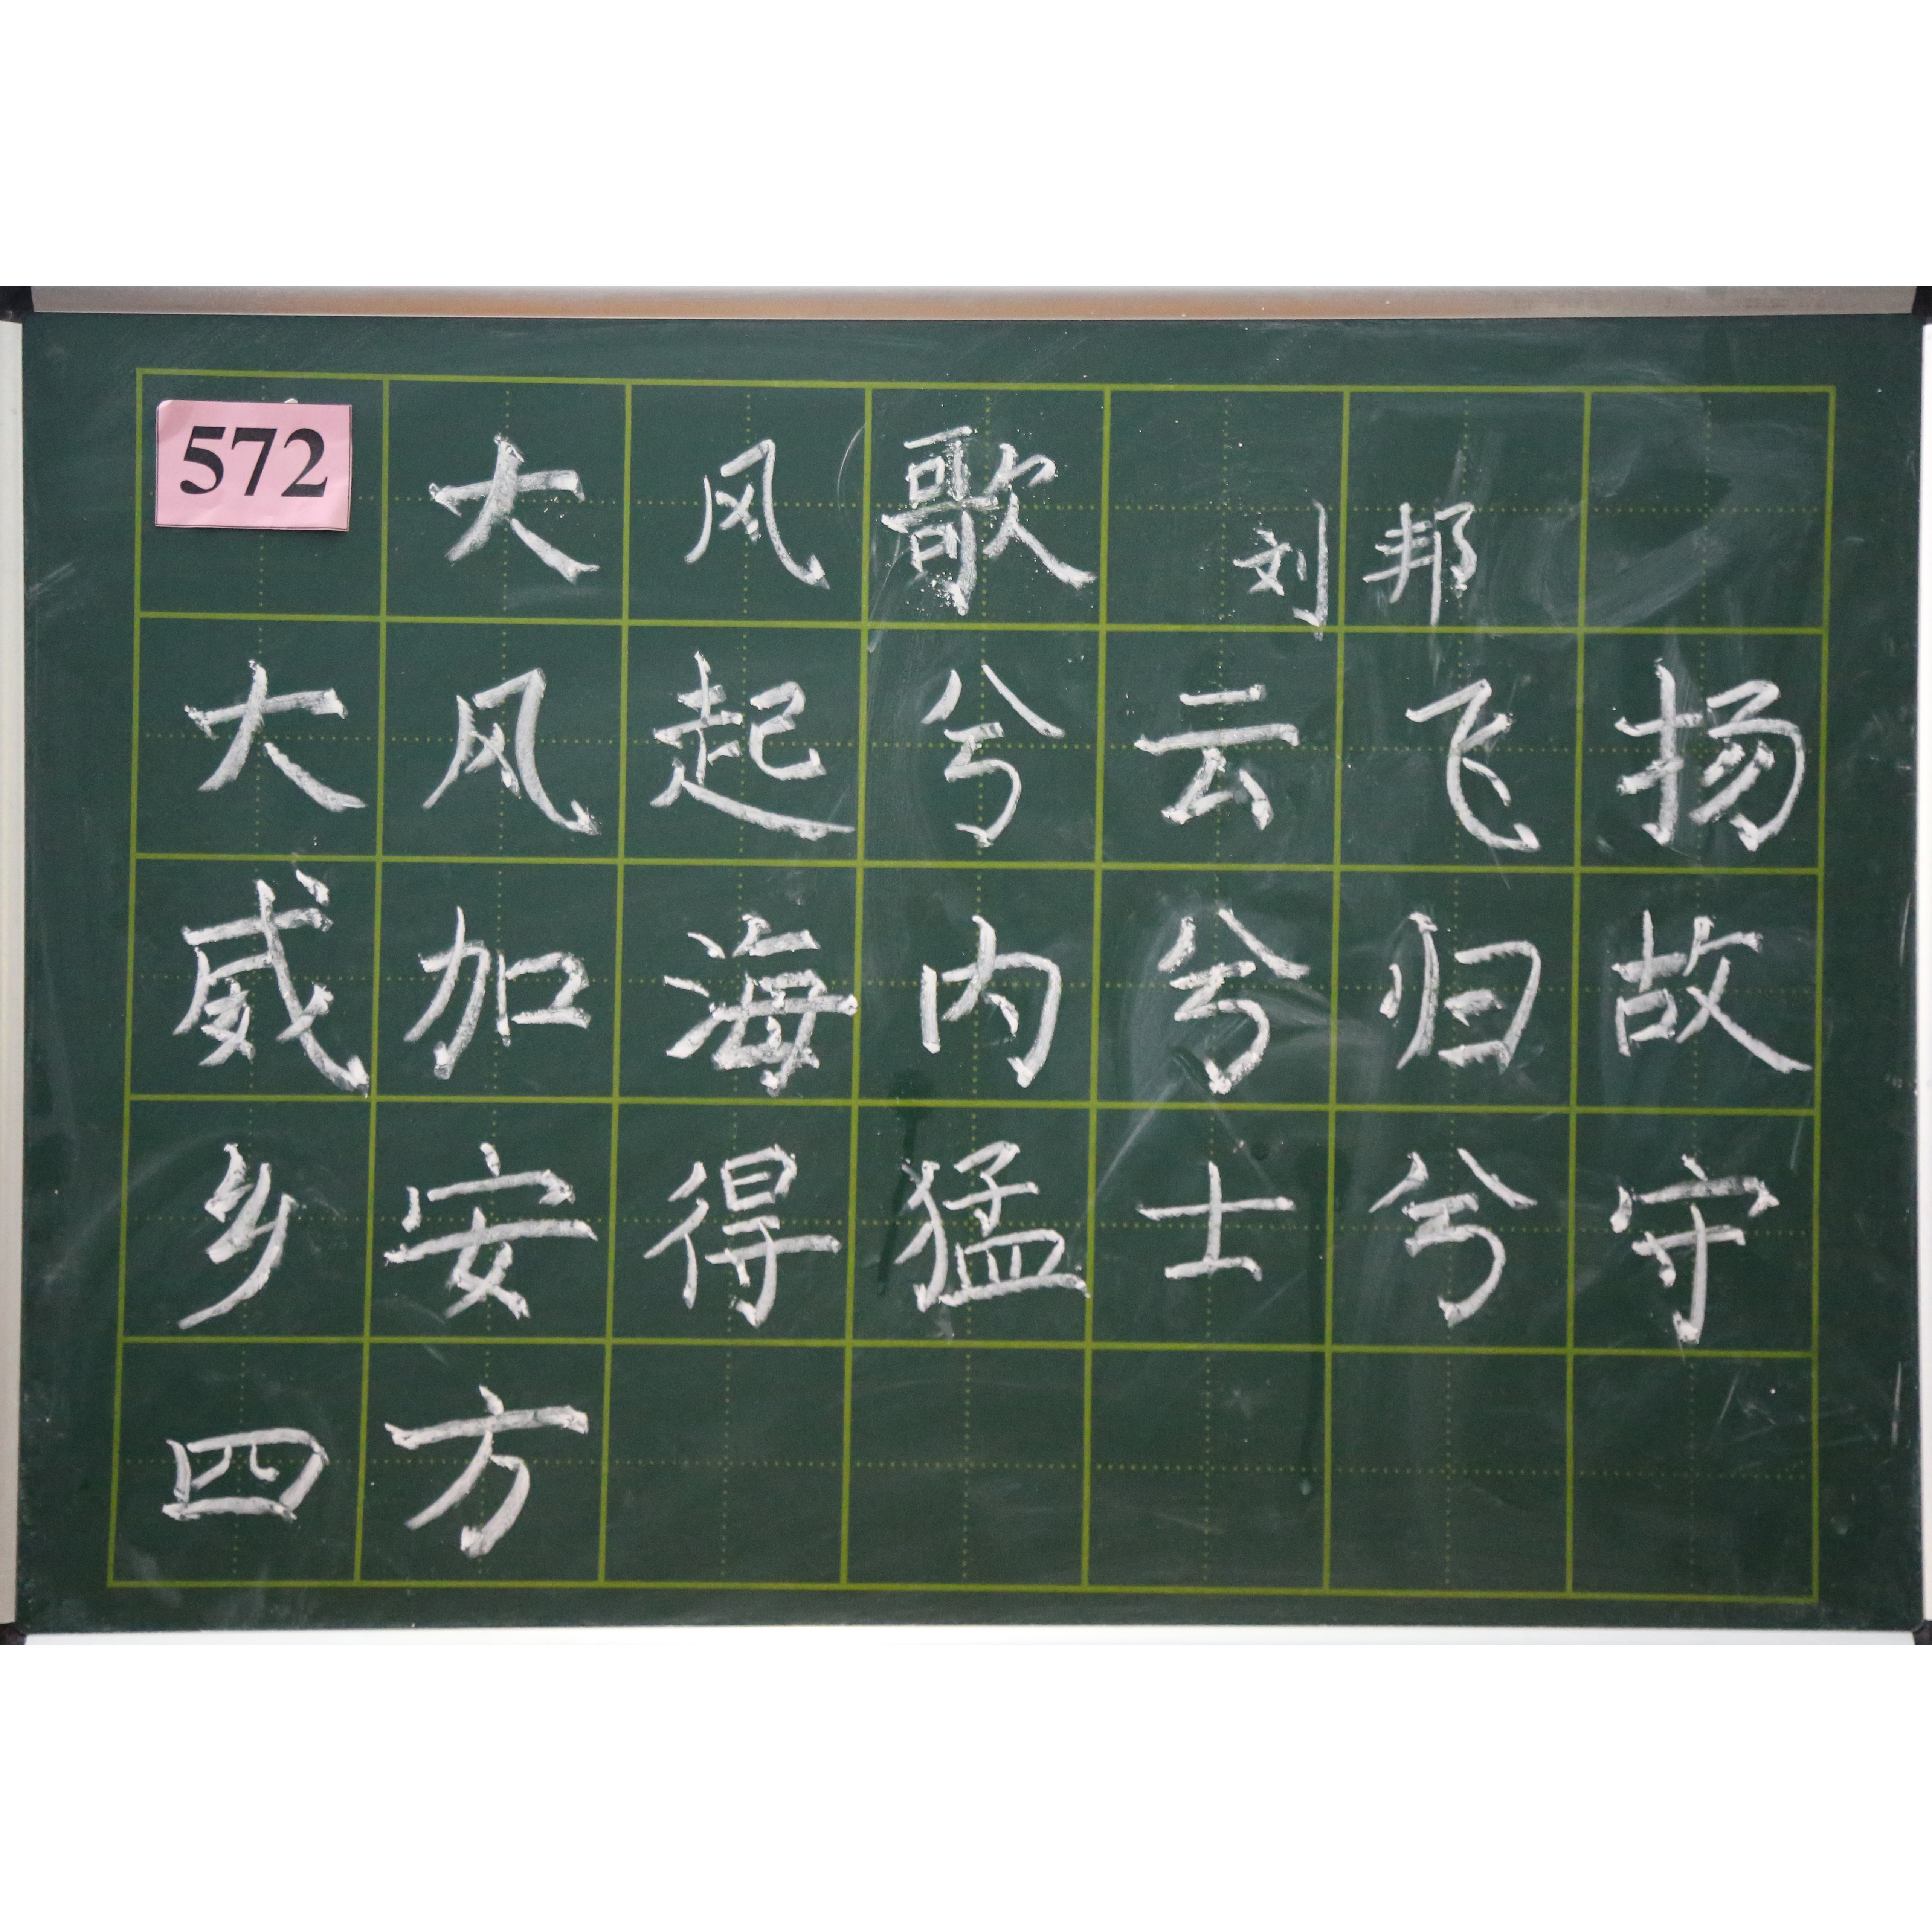 572 大风歌 刘邦
大风起兮云飞扬
威加海内兮归故
乡安得猛士兮守
四方